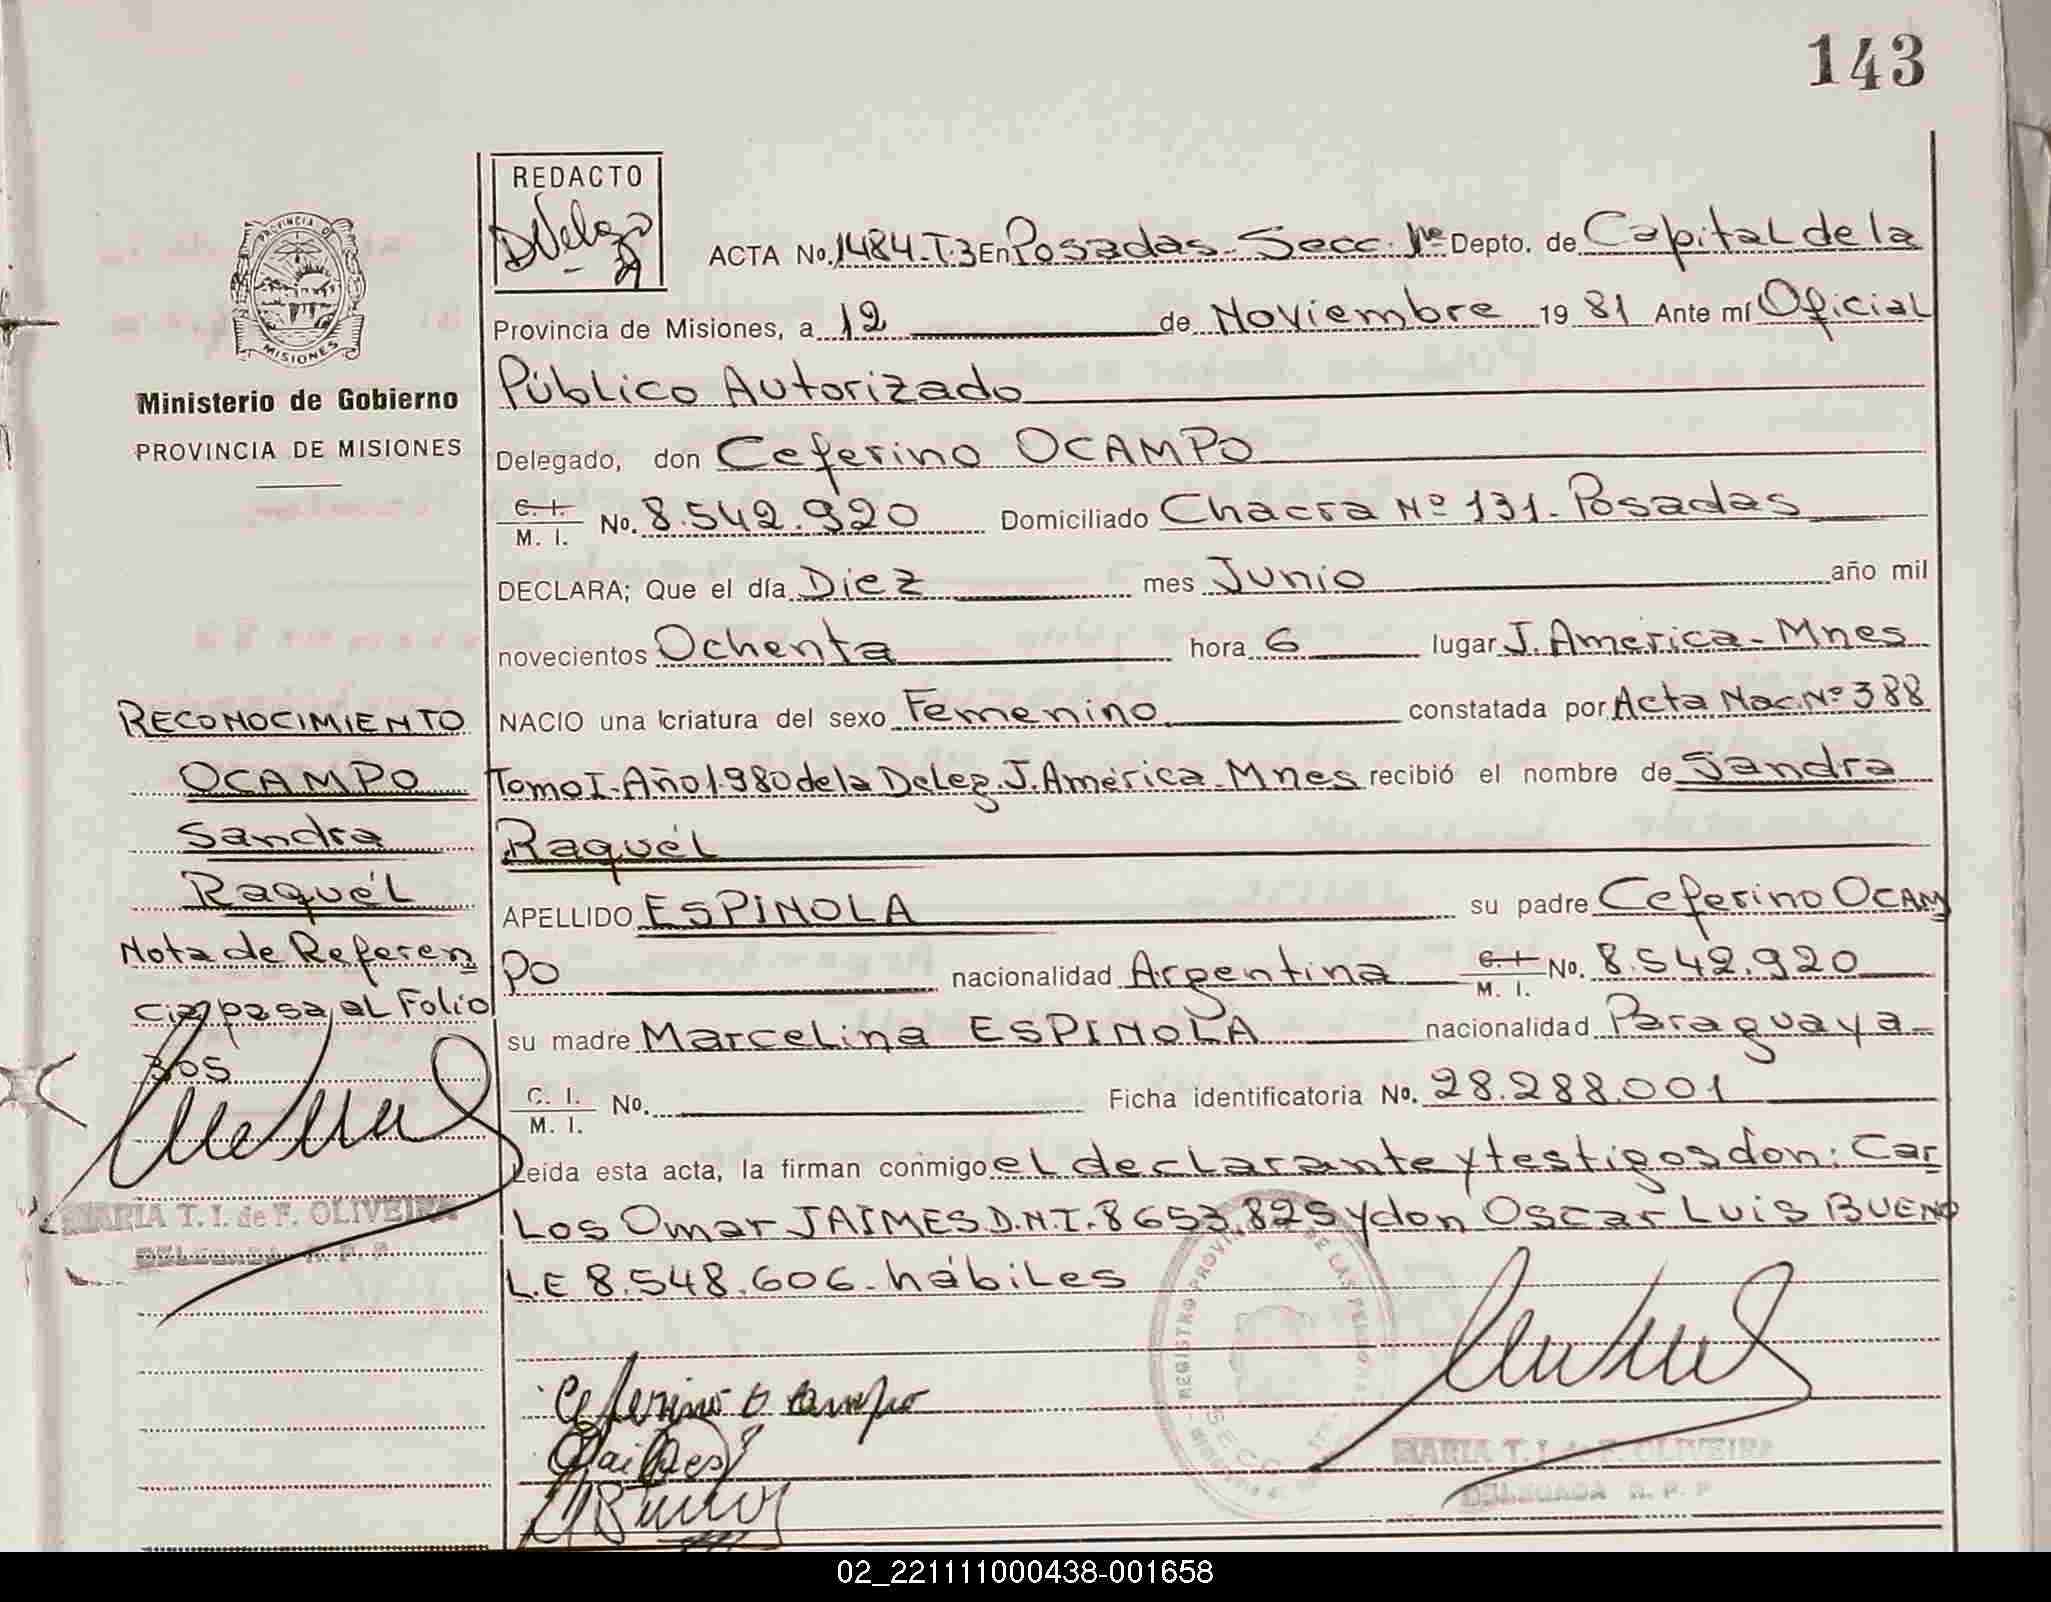 143
REDACTO
PROVINCIA DE
MISIONES
Ministerio de Gobierno
PROVINCIA DE MISIONES
RECONOCIMIENTO
OCAMPO
Sandra
Raquél
Nota de Referen
cia pasa al Folio
305
MARIA T. I. de F. OLIVEIRA
DELEGADA R. P. P.
ACTA No. 1484-T.3 En Posadas-Secc. 1ra Depto. de Capital de la
Provincia de Misiones, a 12 de Noviembre 19 81 Ante mí Oficial
Público Autorizado
Delegado, don Ceferino OCAMPO
C. I.
M. I. No. 8.542.920 Domiciliado Chacra Nº 131-Posadas
DECLARA; Que el día Diez mes Junio año mil
novecientos Ochenta hora 6 lugar J. América-Mnes
NACIO una criatura del sexo Femenino constatada por Acta Nac. Nº 388
Tomo I-Año 1.980 de la Deleg. J. América-Mnes recibió el nombre de Sandra
Raquél
APELLIDO ESPINOLA su padre Ceferino OCAM
PO nacionalidad Argentina C. I. M. I. No. 8.542.920
su madre Marcelina ESPINOLA nacionalidad Paraguaya
C. I.
M. I. No. Ficha identificatoria No. 28.288.001
Leída esta acta, la firman conmigo el declarante y testigos don: Car
los Omar JAIMES D.N.I. 8653.825 y don Oscar Luis BUENO
L.E 8.548.606-hábiles
Ceferino Ocampo
MARIA T. I. de F. OLIVEIRA
DELEGADA R. P. P
02_221111000438-001658